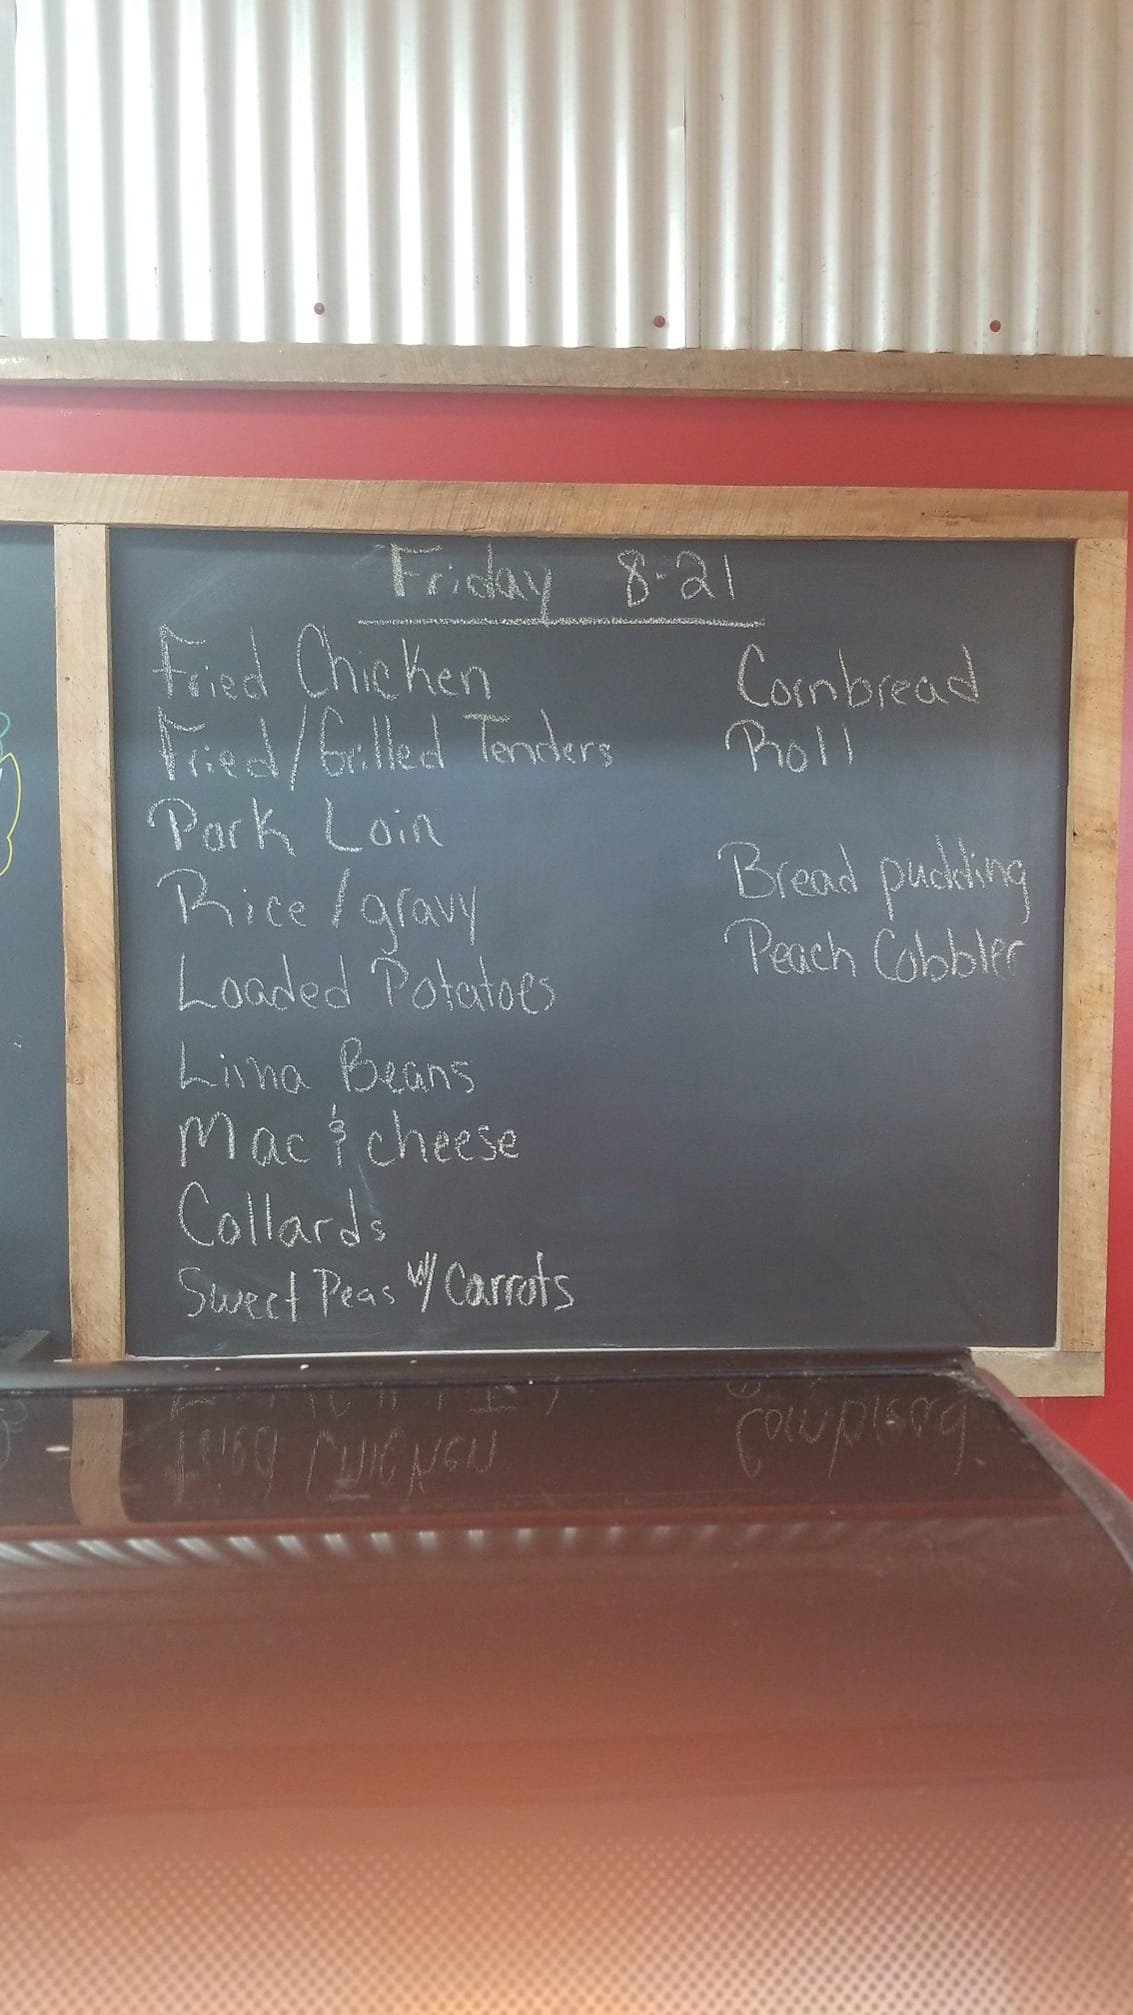 Friday 8-21
Fried Chicken
Fried/Grilled Tenders
Pork Loin
Rice/gravy
Loaded Potatoes
Lima Beans
Mac & cheese
Collards
Sweet Peas w/ Carrots
Cornbread
Roll
Bread pudding
Peach Cobbler